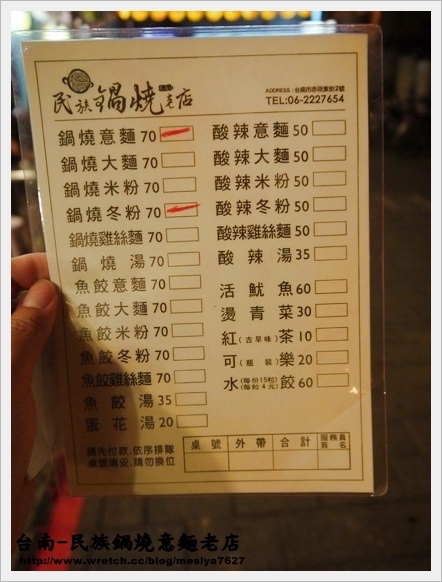 民族鍋燒老店
ADDRESS：台南市赤崁東街2號
TEL:06-2227654
鍋燒意麵 70
鍋燒大麵 70
鍋燒米粉 70
鍋燒冬粉 70
鍋燒雞絲麵 70
鍋燒湯 70
魚餃意麵 70
魚餃大麵 70
魚餃米粉 70
魚餃冬粉 70
魚餃雞絲麵 70
魚餃湯 35
蛋花湯 20
酸辣意麵 50
酸辣大麵 50
酸辣米粉 50
酸辣冬粉 50
酸辣雞絲麵 50
酸辣湯 35
活魷魚 60
燙青菜 30
紅(古早味)茶 10
可(瓶裝)樂 20
水(每份15粒)(每粒4元)餃 60
請先付款.依序排隊
桌號填妥.請勿換位
桌號 外帶 合計 服務員簽名
台南-民族鍋燒意麵老店
http://www.wretch.cc/blog/mesiya7627